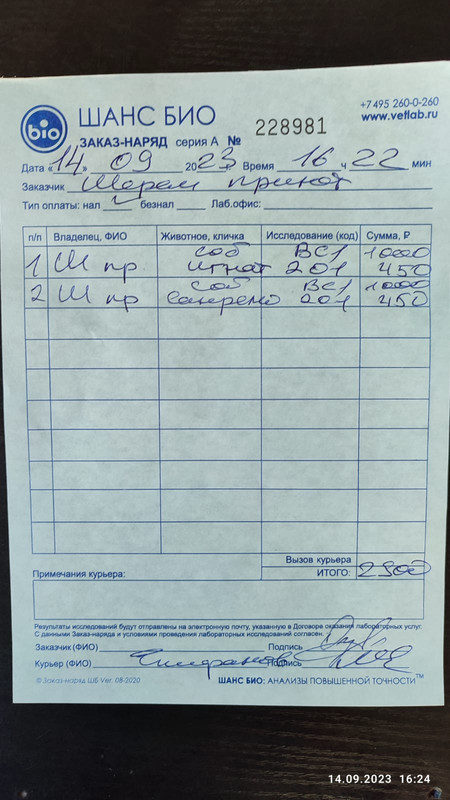 bio
ШАНС БИО
+7 495 260-0-260
www.vetlab.ru
ЗАКАЗ-НАРЯД серия А № 228981
Дата «14» 09 2023 г. Время 16 ч 22 мин
Заказчик Шерем приют
Тип оплаты: нал ✓ безнал ____ Лаб.офис:
п/п Владелец, ФИО Животное, кличка Исследование (код) Сумма, ₽
1 Ш пр. соб Игнат ВС1 201 1000 450
2 Ш пр соб Санремо ВС1 201 1000 450
Вызов курьера
Примечания курьера: ИТОГО: 2900
Результаты исследований будут отправлены на электронную почту, указанную в Договоре оказания лабораторных услуг.
С данными Заказ-наряда и условиями проведения лабораторных исследований согласен.
Заказчик (ФИО) Подпись
Курьер (ФИО) Подпись
© Заказ-наряд ШБ Ver. 08-2020 ШАНС БИО: АНАЛИЗЫ ПОВЫШЕННОЙ ТОЧНОСТИ™
14.09.2023 16:24